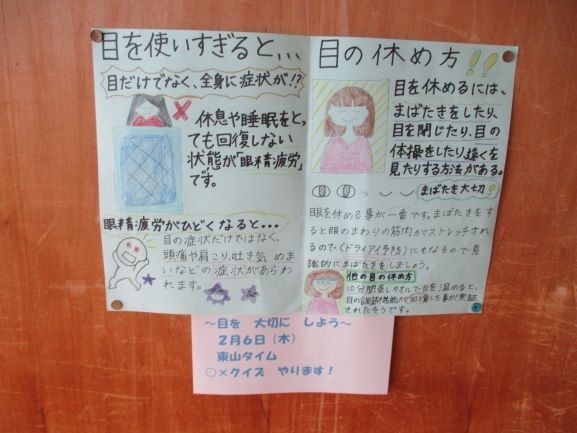 目を使いすぎると...
目だけでなく、全身に症状が!?
休息や睡眠をとっ
ても回復しない
状態が「眼精疲労」
です。
眼精疲労がひどくなると…
目の症状だけではなく、
頭痛や肩こり、吐き気、めま
いなどの症状があらわ
れます。
目の休め方!!
目を休めるには、
まばたきをしたり、
目を閉じたり、目の
体操をしたり、遠くを
見たりする方法がある。
まばたき大切!
眼を休める事が一番です。まばたきをす
ると眼のまわりの筋肉がストレッチされ
るので(ドライアイ予防)にもなるので意
識的にまばたきをしましょう。
他の目の休め方
10分間蒸しタオルで目を温めると、
目の調節機能が回復した事が実証
されたそうです。
～目を 大切に しよう～
2月6日(木)
東山タイム
○×クイズ やります!